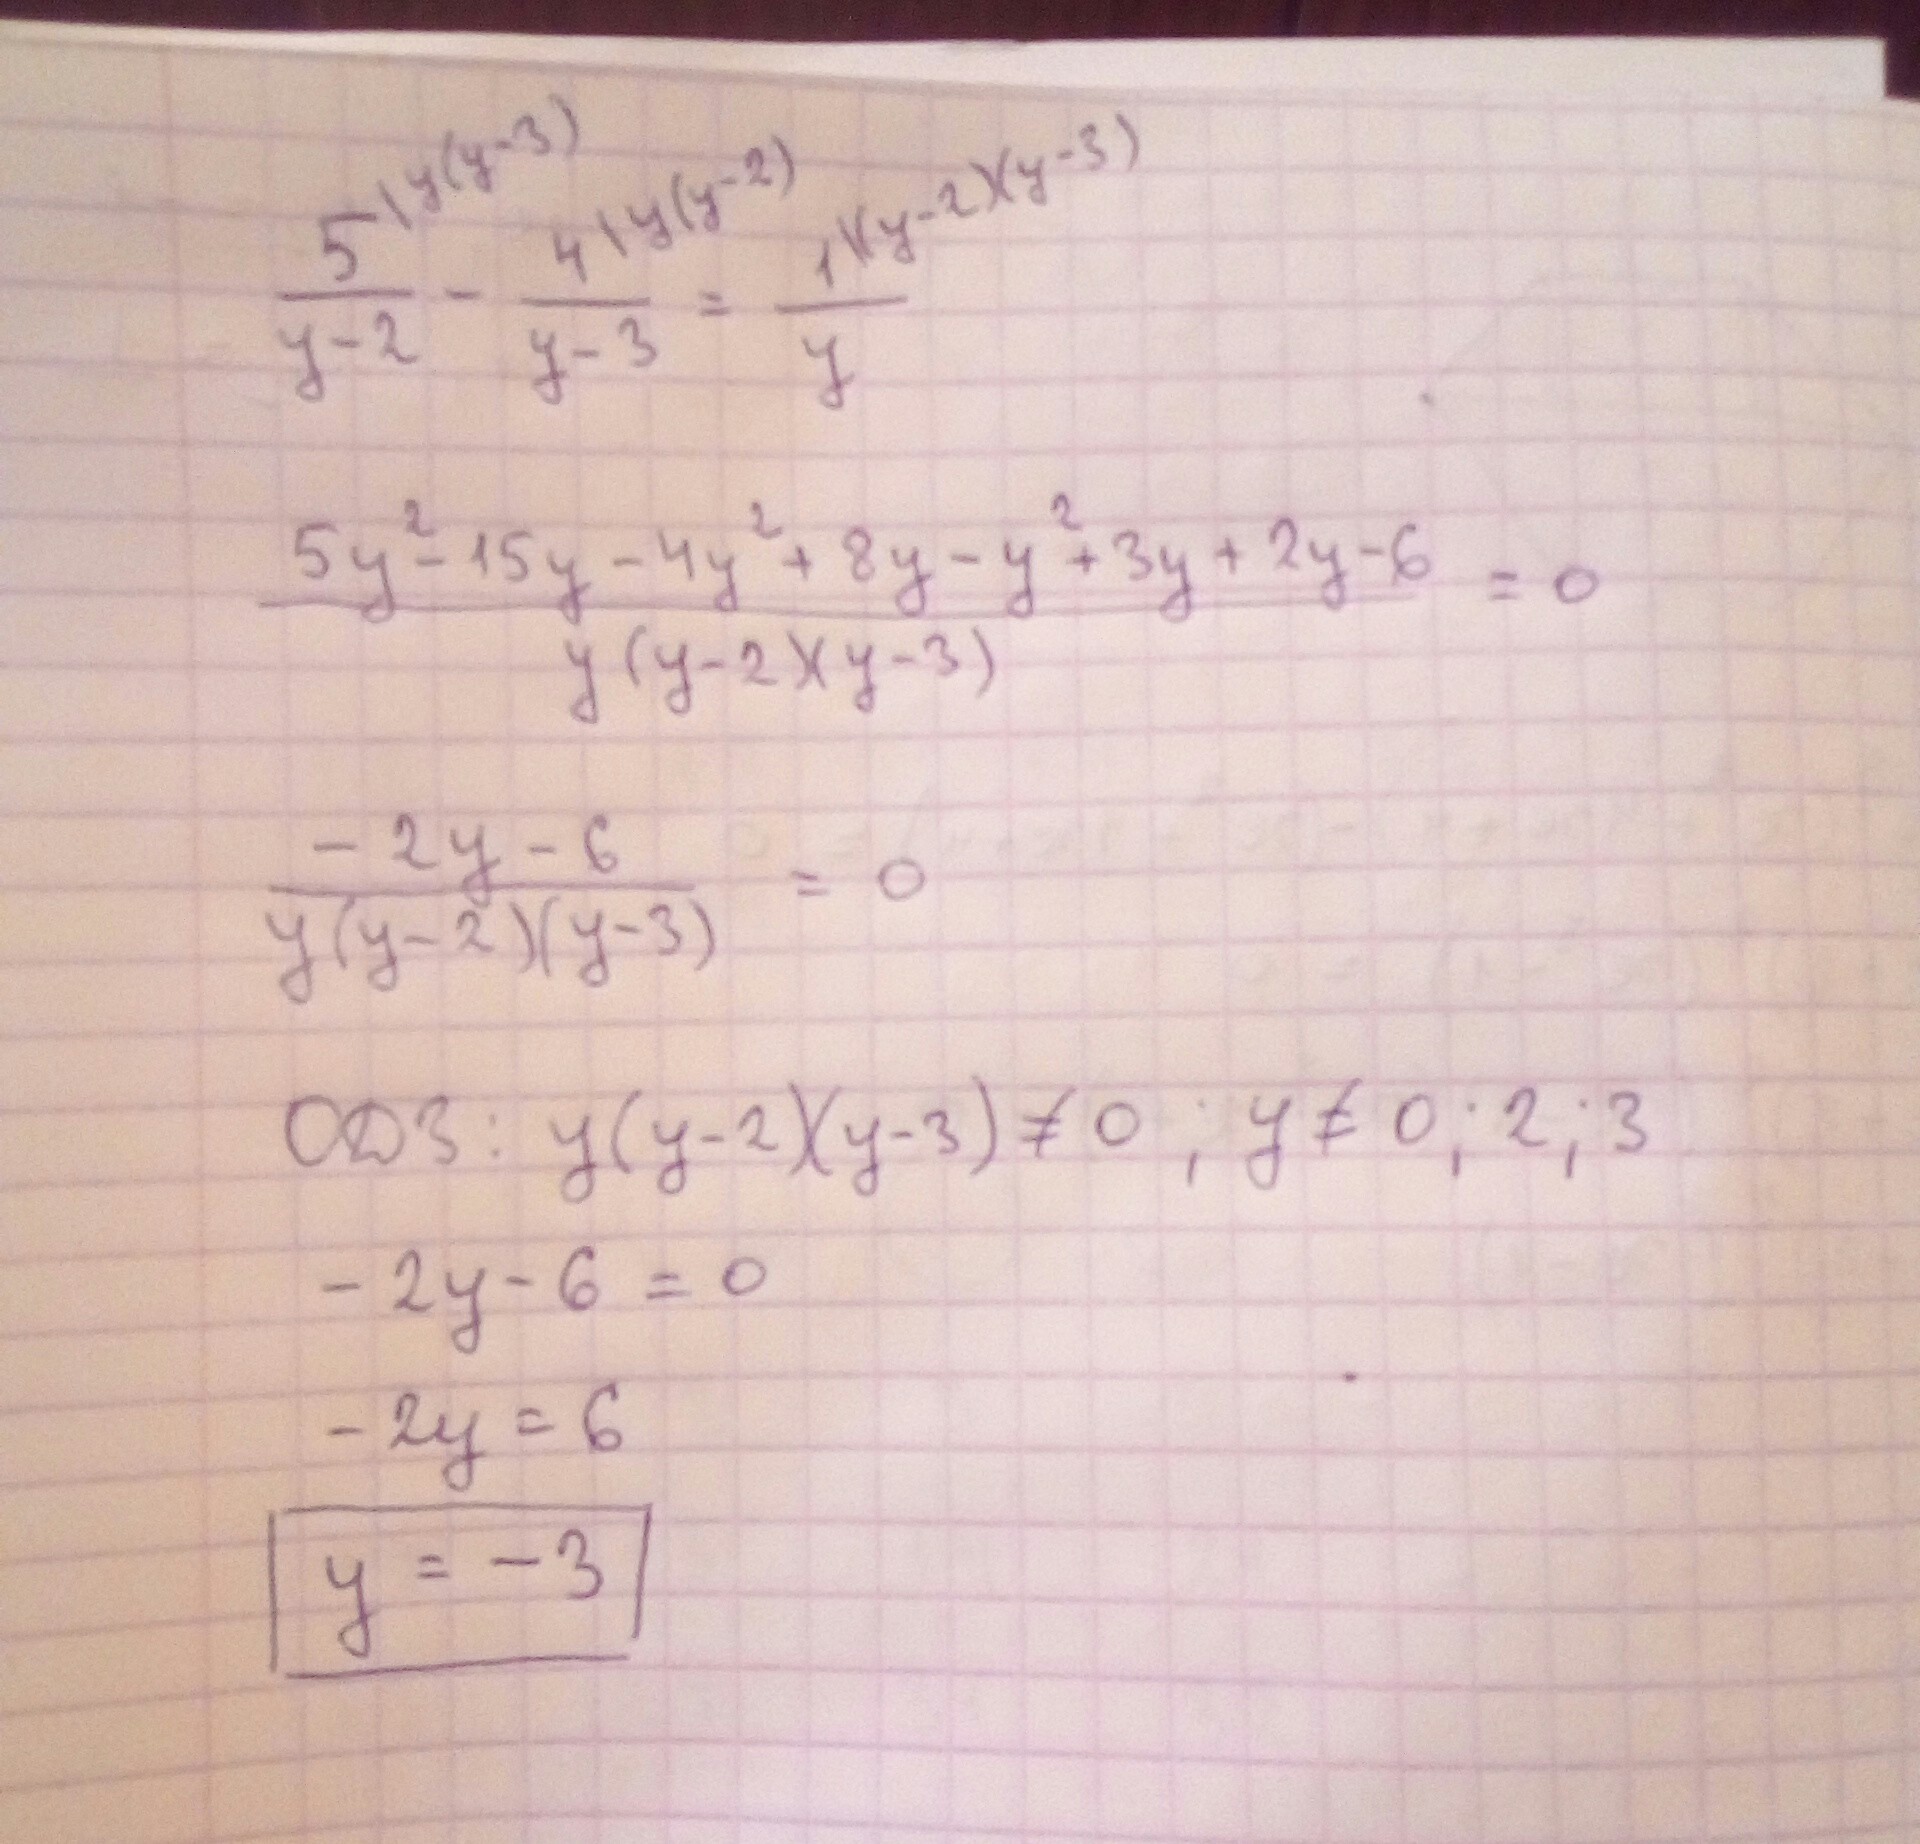 5\y(y-3) / y-2 - 4\y(y-2) / y-3 = 1\(y-2)(y-3) / y
5y²-15y-4y²+8y-y²+3y+2y-6 / y(y-2)(y-3) = 0
-2y-6 / y(y-2)(y-3) = 0
ОДЗ: y(y-2)(y-3)≠0; y≠0;2;3
-2y-6=0
-2y=6
y=-3